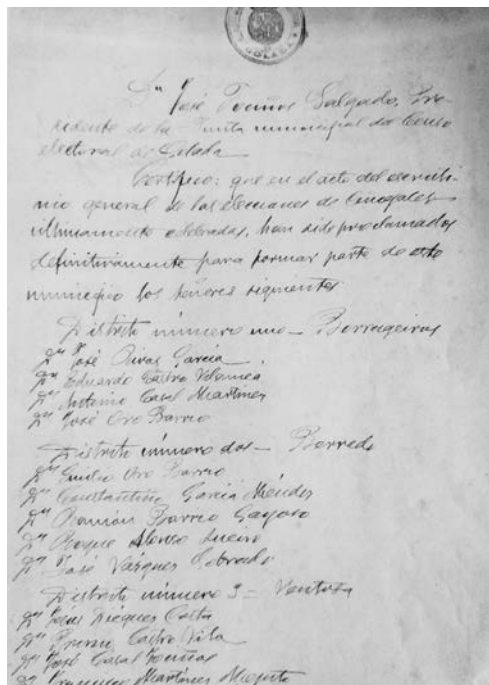 GOLADA
Dn José Fociños Salgado, Pre-
sidente de la Junta municipal del Censo
electoral de Golada
Certifico: que en el acto del escruti-
nio general de las elecciones de Concejales
últimamente celebradas, han sido proclamados
definitivamente para formar parte de este
municipio los señores siguientes
Distrito número uno - Borrageiros
Dn José Rivas García
Dn Eduardo Castro Vilamea
Dn Antonio Casal Martínez
Dn José Oro Barrio
Distrito número dos - Berredo
Dn Emilio Oro Barrio
Dn Constantino García Méndez
Dn Ramón Barrio Gayoso
Dn Roque Alonso
Dn José Vázquez
Distrito número 3 = Ventosa
Dn Diéguez Costa
Dn Castro Vila
Dn José Casal Fociños
Dn Francisco Martínez